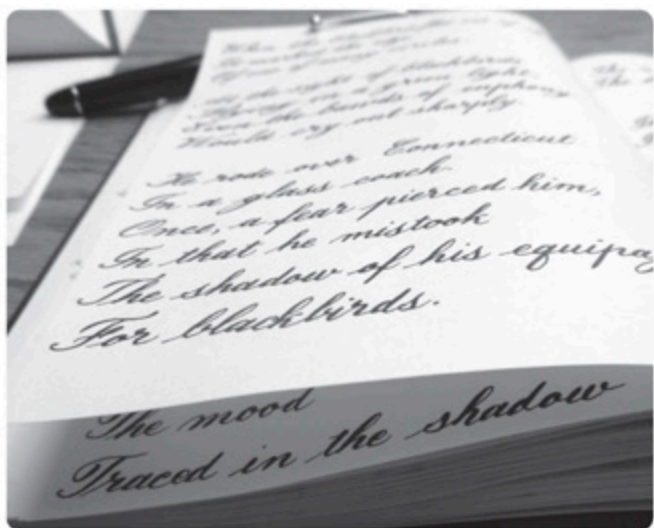 When the
Of one of many circles
At the sight of blackbirds
Flying in a light,
Even the bawds of euphony
Would cry out sharply.
He rode over Connecticut
In a glass coach.
Once, a fear pierced him,
In that he mistook
The shadow of his equipa
For blackbirds.
The mood
Traced in the shadow